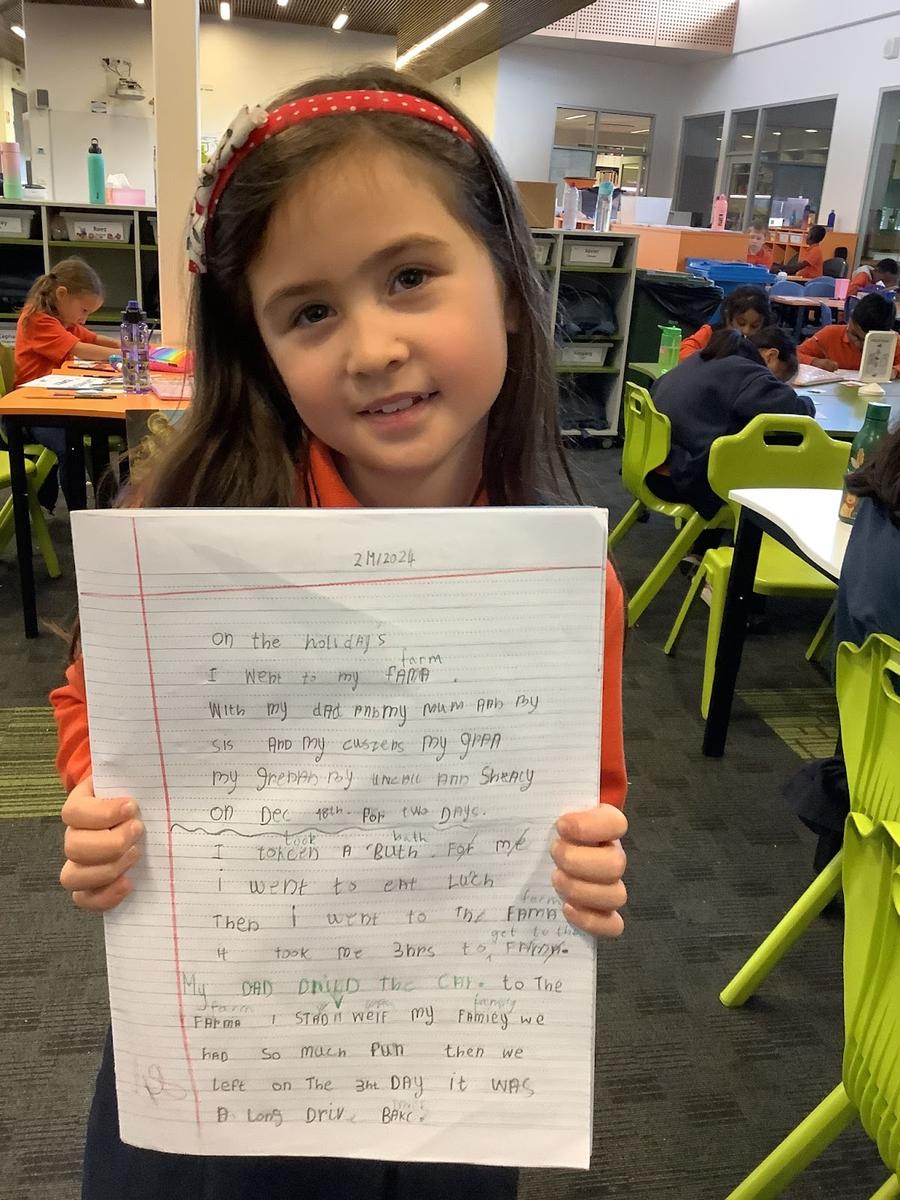 2/1/2024
On the holidAy's
farm
I went to my fAMA .
With my dAD AnD my mum AnD my
sis AnD my cuszens my grAn
my greDAD my uncall AnD SheAly
on Dec 18th. For two DAys.
took bath
I tokeen A Buth . For me
i went to eat Luch
farm
Then I went to The FAMA
get to the
it took me 3hrs to FAMA.
My DAD DRiLD The CAr. to The
farm family
FArmA I STAD weif my Famiey we
hAD so much Fun then we
Left on The 3ht DAY it WAS
A Long Driv BAKc.